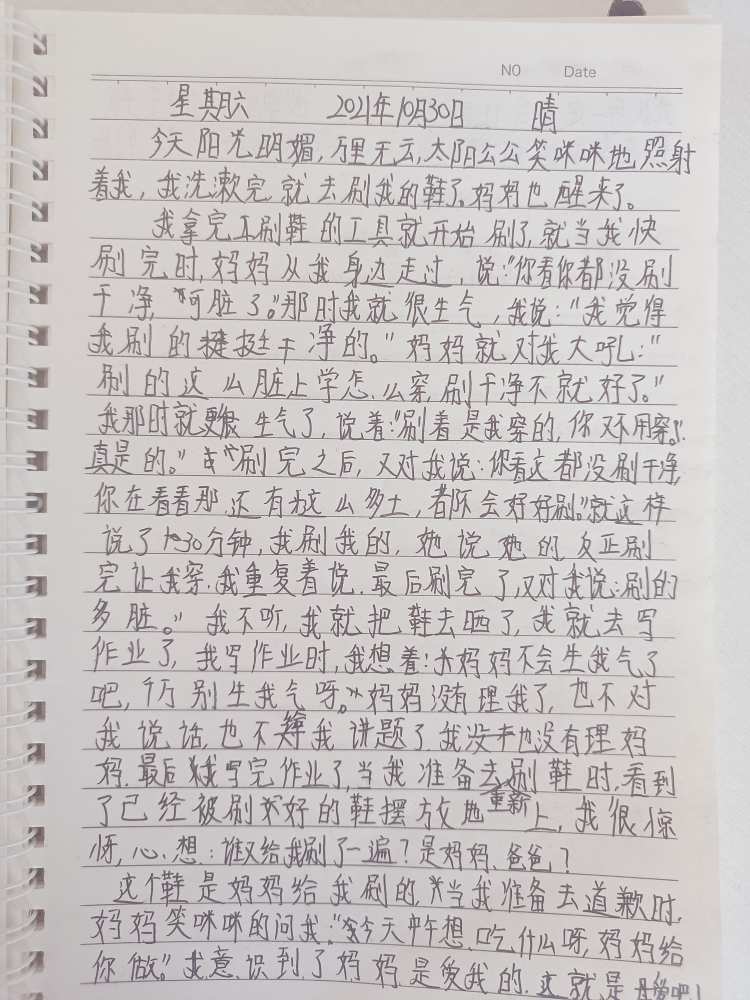 NO Date
星期六 2021年10月30日 晴
今天阳光明媚,万里无云,太阳公公笑咪咪地照射
着我,我洗漱完就去刷我的鞋了,妈妈也醒来了。
我拿完刷鞋的工具就开始刷了,就当我快
刷完时,妈妈从我身边走过,说:“你看你都没刷
干净,可脏了。”那时我就很生气,我说:“我觉得
我刷的挺干净的。”妈妈就对我大吼:“
刷的这么脏上学怎么穿,刷干净不就好了。”
我那时就更生气了,说着:“刷着是我穿的,你又不用穿。
真是的。”刷完之后,又对我说:你看这都没刷干净,
你在看看那,还有这么多土,都不会好好刷。”就这样
说了30分钟,我刷我的,她说她的反正刷
完让我穿.我重复着说.最后刷完了,又对我说:刷的
多脏。”我不听,我就把鞋去晒了,我就去写
作业了,我写作业时,我想着:妈妈不会生我气了
吧,千万别生我气呀。”妈妈没有理我了,也不对
我说话,也不给我讲题了.我也没有理妈
妈.最后我写完作业了,当我准备去刷鞋时,看到
了已经被刷好的鞋摆放地重新上,我很惊
讶,心.想:谁又给我刷了一遍?是妈妈.爸爸?
这个鞋是妈妈给我刷的,当我准备去道歉时,
妈妈笑咪咪的问我:“今天中午想.吃什么呀,妈妈给
你做。”我意.识到了妈妈是爱我的.这就是母爱吧!